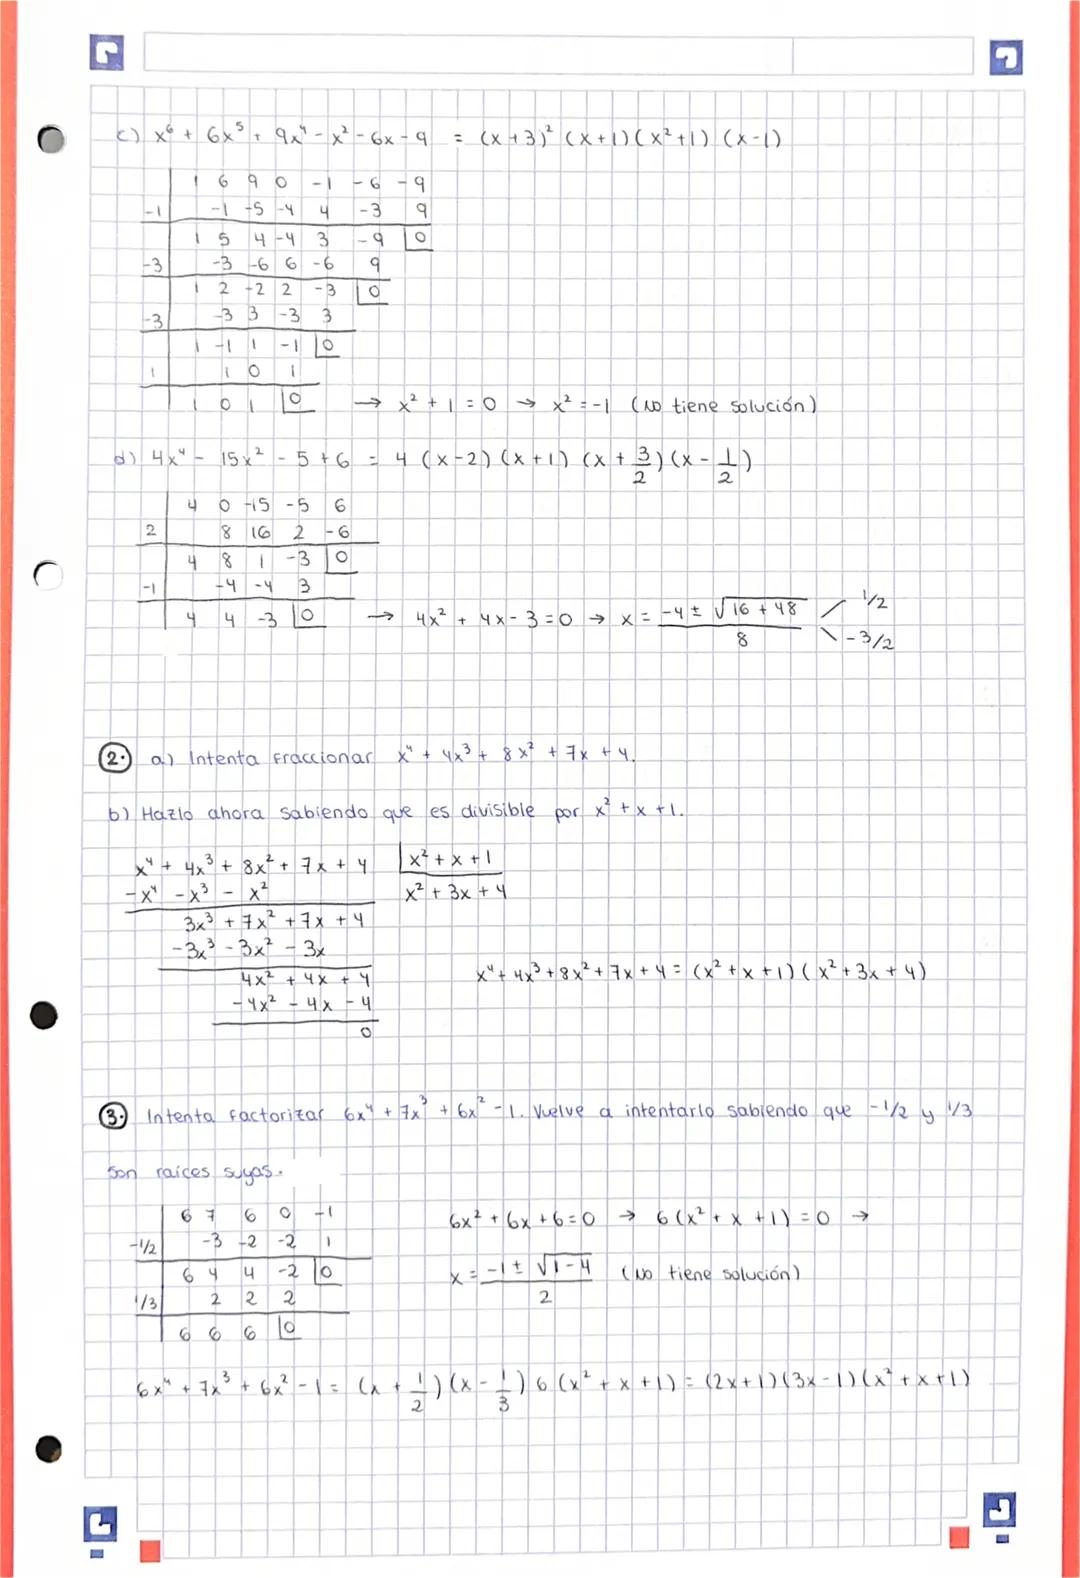 c) x⁶ + 6x⁵ + 9x⁴ - x² - 6x - 9 = (x+3)² (x+1) (x²+1) (x-1)
1 6 9 0 -1 -6 -9
-1 -1 -5 -4 4 -3 9
1 5 4 -4 3 -9 0
-3 -3 -6 6 -6 9
1 2 -2 2 -3 0
-3 -3 3 -3 3
1 -1 1 -1 0
1 1 0 1
1 0 1 0 → x² + 1 = 0 → x² = -1 (No tiene solución)
d) 4x⁴ - 15x² - 5 + 6 = 4 (x-2) (x+1) (x + 3/2) (x - 1/2)
4 0 -15 -5 6
2 8 16 2 -6
4 8 1 -3 0
-1 -4 -4 3
4 4 -3 0 → 4x² + 4x - 3 = 0 → x = (-4 ± √16 + 48) / 8 1/2 -3/2
2. a) Intenta fraccionar x⁴ + 4x³ + 8x² + 7x + 4.
b) Hazlo ahora sabiendo que es divisible por x² + x + 1.
x⁴ + 4x³ + 8x² + 7x + 4 x² + x + 1
-x⁴ - x³ - x² x² + 3x + 4
3x³ + 7x² + 7x + 4
-3x³ - 3x² - 3x
4x² + 4x + 4 x⁴ + 4x³ + 8x² + 7x + 4 = (x² + x + 1) (x² + 3x + 4)
-4x² - 4x - 4
0
3. Intenta factorizar 6x⁴ + 7x³ + 6x² - 1. Vuelve a intentarlo sabiendo que -1/2 y 1/3
son raíces suyas.
6 7 6 0 -1 6x² + 6x + 6 = 0 → 6 (x² + x + 1) = 0 →
-1/2 -3 -2 -2 1
6 4 4 -2 0 x = (-1 ± √1 - 4) / 2 (No tiene solución)
1/3 2 2 2
6 6 6 0
6x⁴ + 7x³ + 6x² - 1 = (x + 1/2) (x - 1/3) 6 (x² + x + 1) = (2x+1) (3x-1) (x² + x + 1)